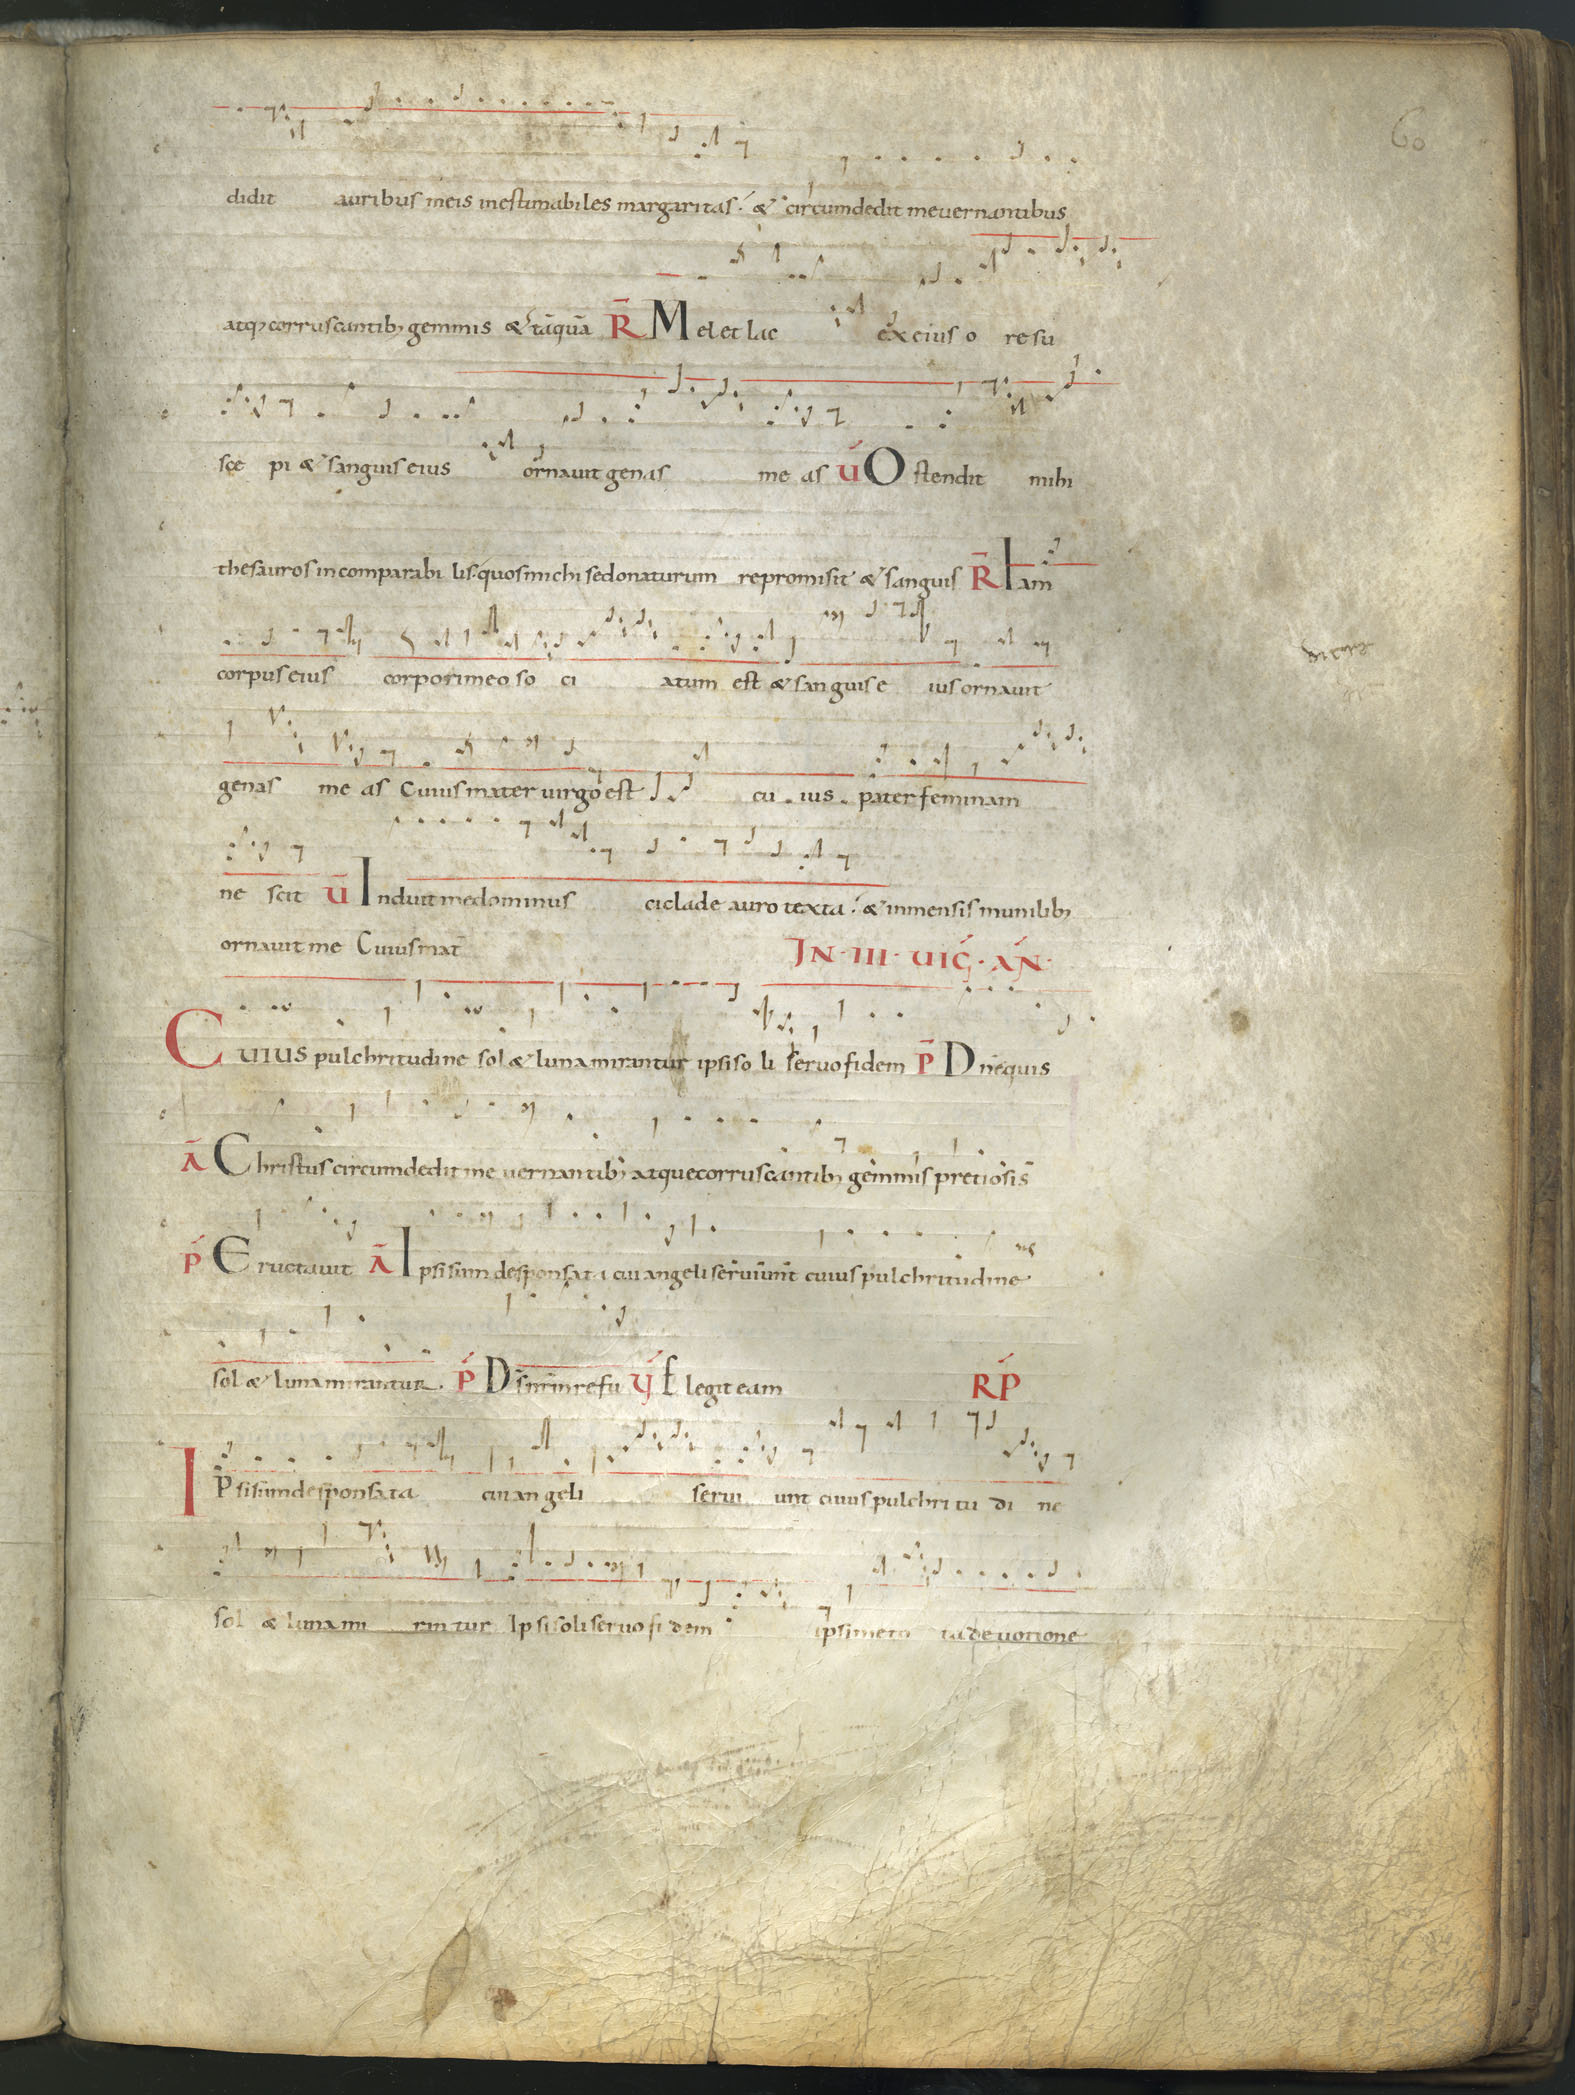 60
didit auribus meis inestimabiles margaritas : & circumdedit me uernantibus
atq; corruscantib; gemmis & tāquā R̄ Mel et lac ex eius o re su
sce pi & sanguis eius ornauit genas me as V̄ Ostendit mihi
thesauros incomparabi lis. quos michi se donaturum repromisit & sanguis R̄ Iam
corpus eius corpori meo so ci atum est & sanguis e ius ornauit
genas me as Cuius mater uirgo est cu ius pater feminam
ne scit V̄ Induit me dominus ciclade auro texta : & inmensis munilib;
ornauit me Cuius mat̄
IN · III · UIḠ · AN̄ ·
Cuius pulchritudine sol & luna mirantur ipsi so li seruo fidem P̄ Dn̄e quis
Ā Christus circumdedit me uernantib; atque corruscantib; gemmis pretiosis
P̄ Eructauit Ā Ipsi sum desponsata cui angeli seruiunt cuius pulchritudine
sol & luna mirantur. P̄ Ds̄ nr̄m refu V̄ Elegit eam RP̄
Ipsi sum desponsata cui angeli serui unt cuius pulchri tu di ne
sol & luna mi rantur Ipsi soli seruo fi dem ipsi me to ta deuotione